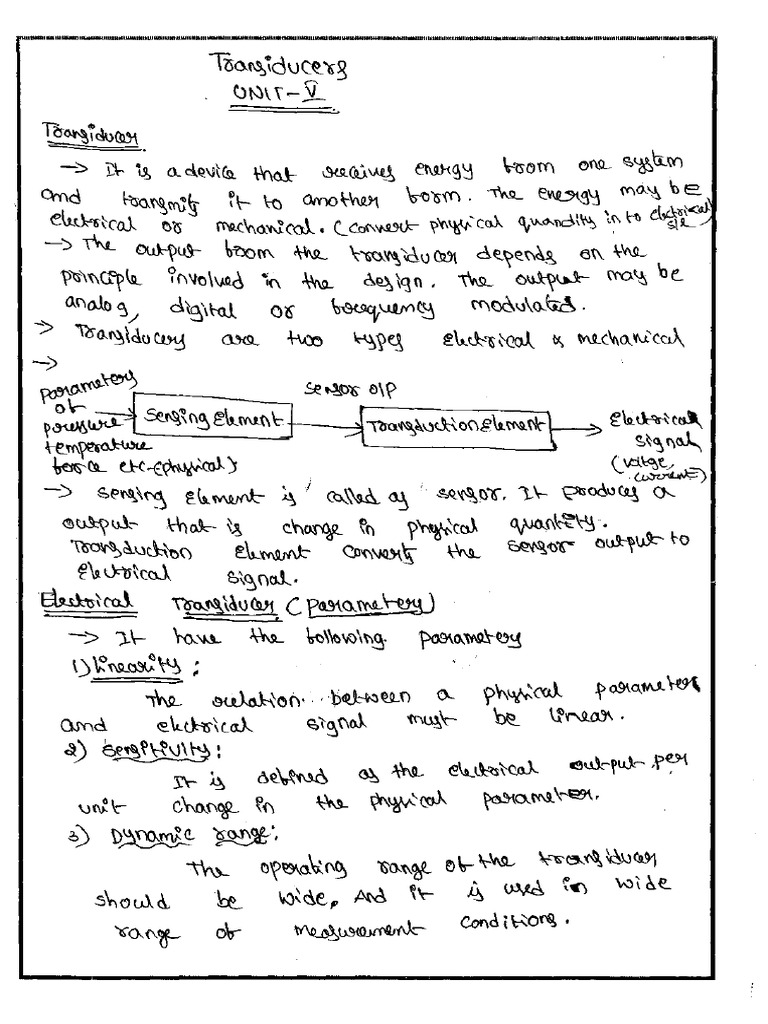 Transducers
UNIT-V
Transducer
→ It is a device that receives energy from one system
and transmits it to another form. The energy may be
electrical or mechanical. (convert physical quantity in to electrical)
→ The output from the transducer depends on the
principle involved in the design. The output may be
analog, digital or frequency modulated.
→ Transducers are two types electrical & mechanical
→
parameters
of
pressure
temperature
force etc-(physical)
Sensing Element
sensor O/P
Transduction Element
Electrical
signal
(voltge,
current)
→ sensing element is called as sensor. It produces a
output that is change in physical quantity.
Transduction element converts the sensor output to
electrical signal.
Electrical Transducer (parameters)
→ It have the following parameters
1) linearity:
The relation between a physical parameter
and elctrical signal must be linear.
2) sensitivity:
It is defined as the electrical output per
unit change in the physical parameter.
3) Dynamic range:
The operating range of the transducer
should be wide, And it is used in wide
range of measurement conditions.